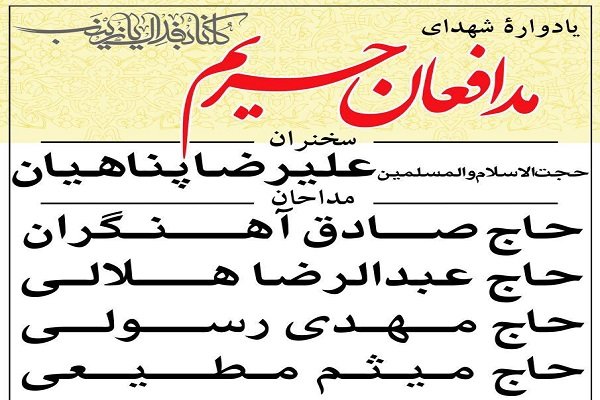 یادوارهٔ شهدای
کلنا فداک یا زینب
مدافعان حریم
سخنران
حجت‌الاسلام‌والمسلمین علیرضا پناهیان
مداحان
حاج صادق آهنگران
حاج عبدالرضا هلالی
حاج مهدی رسولی
حاج میثم مطیعی